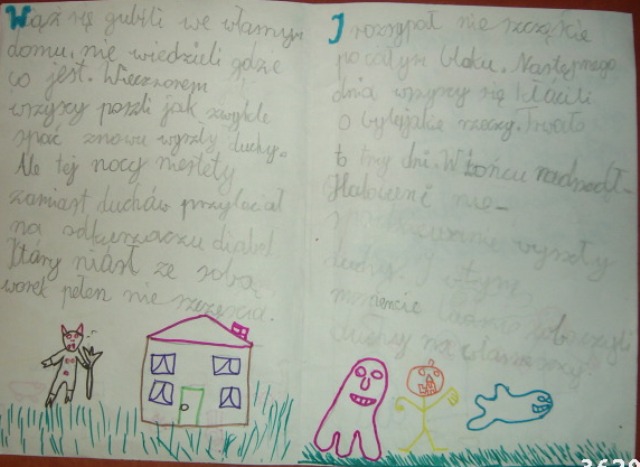 Wciąż się gubili we własnym
domu, nie wiedzieli gdzie
co jest. Wieczorem
wszyscy poszli jak zwykle
spać znowu wyszły duchy.
Ale tej nocy niestety
zamiast duchów przyleciał
na odkurzaczu diabeł
Który niósł ze sobą
worek pełen nie szczęścia.
I rozsypał nie szczęście
po całym bloku. Następnego
dnia wszyscy się kłócili
o byle jakie rzeczy. Trwało
to trzy dni. W końcu nadszedł
Haloweni nie-
spodziewanie wyszły
duchy. I w tym
momencie zobaczyli
duchy na własne oczy